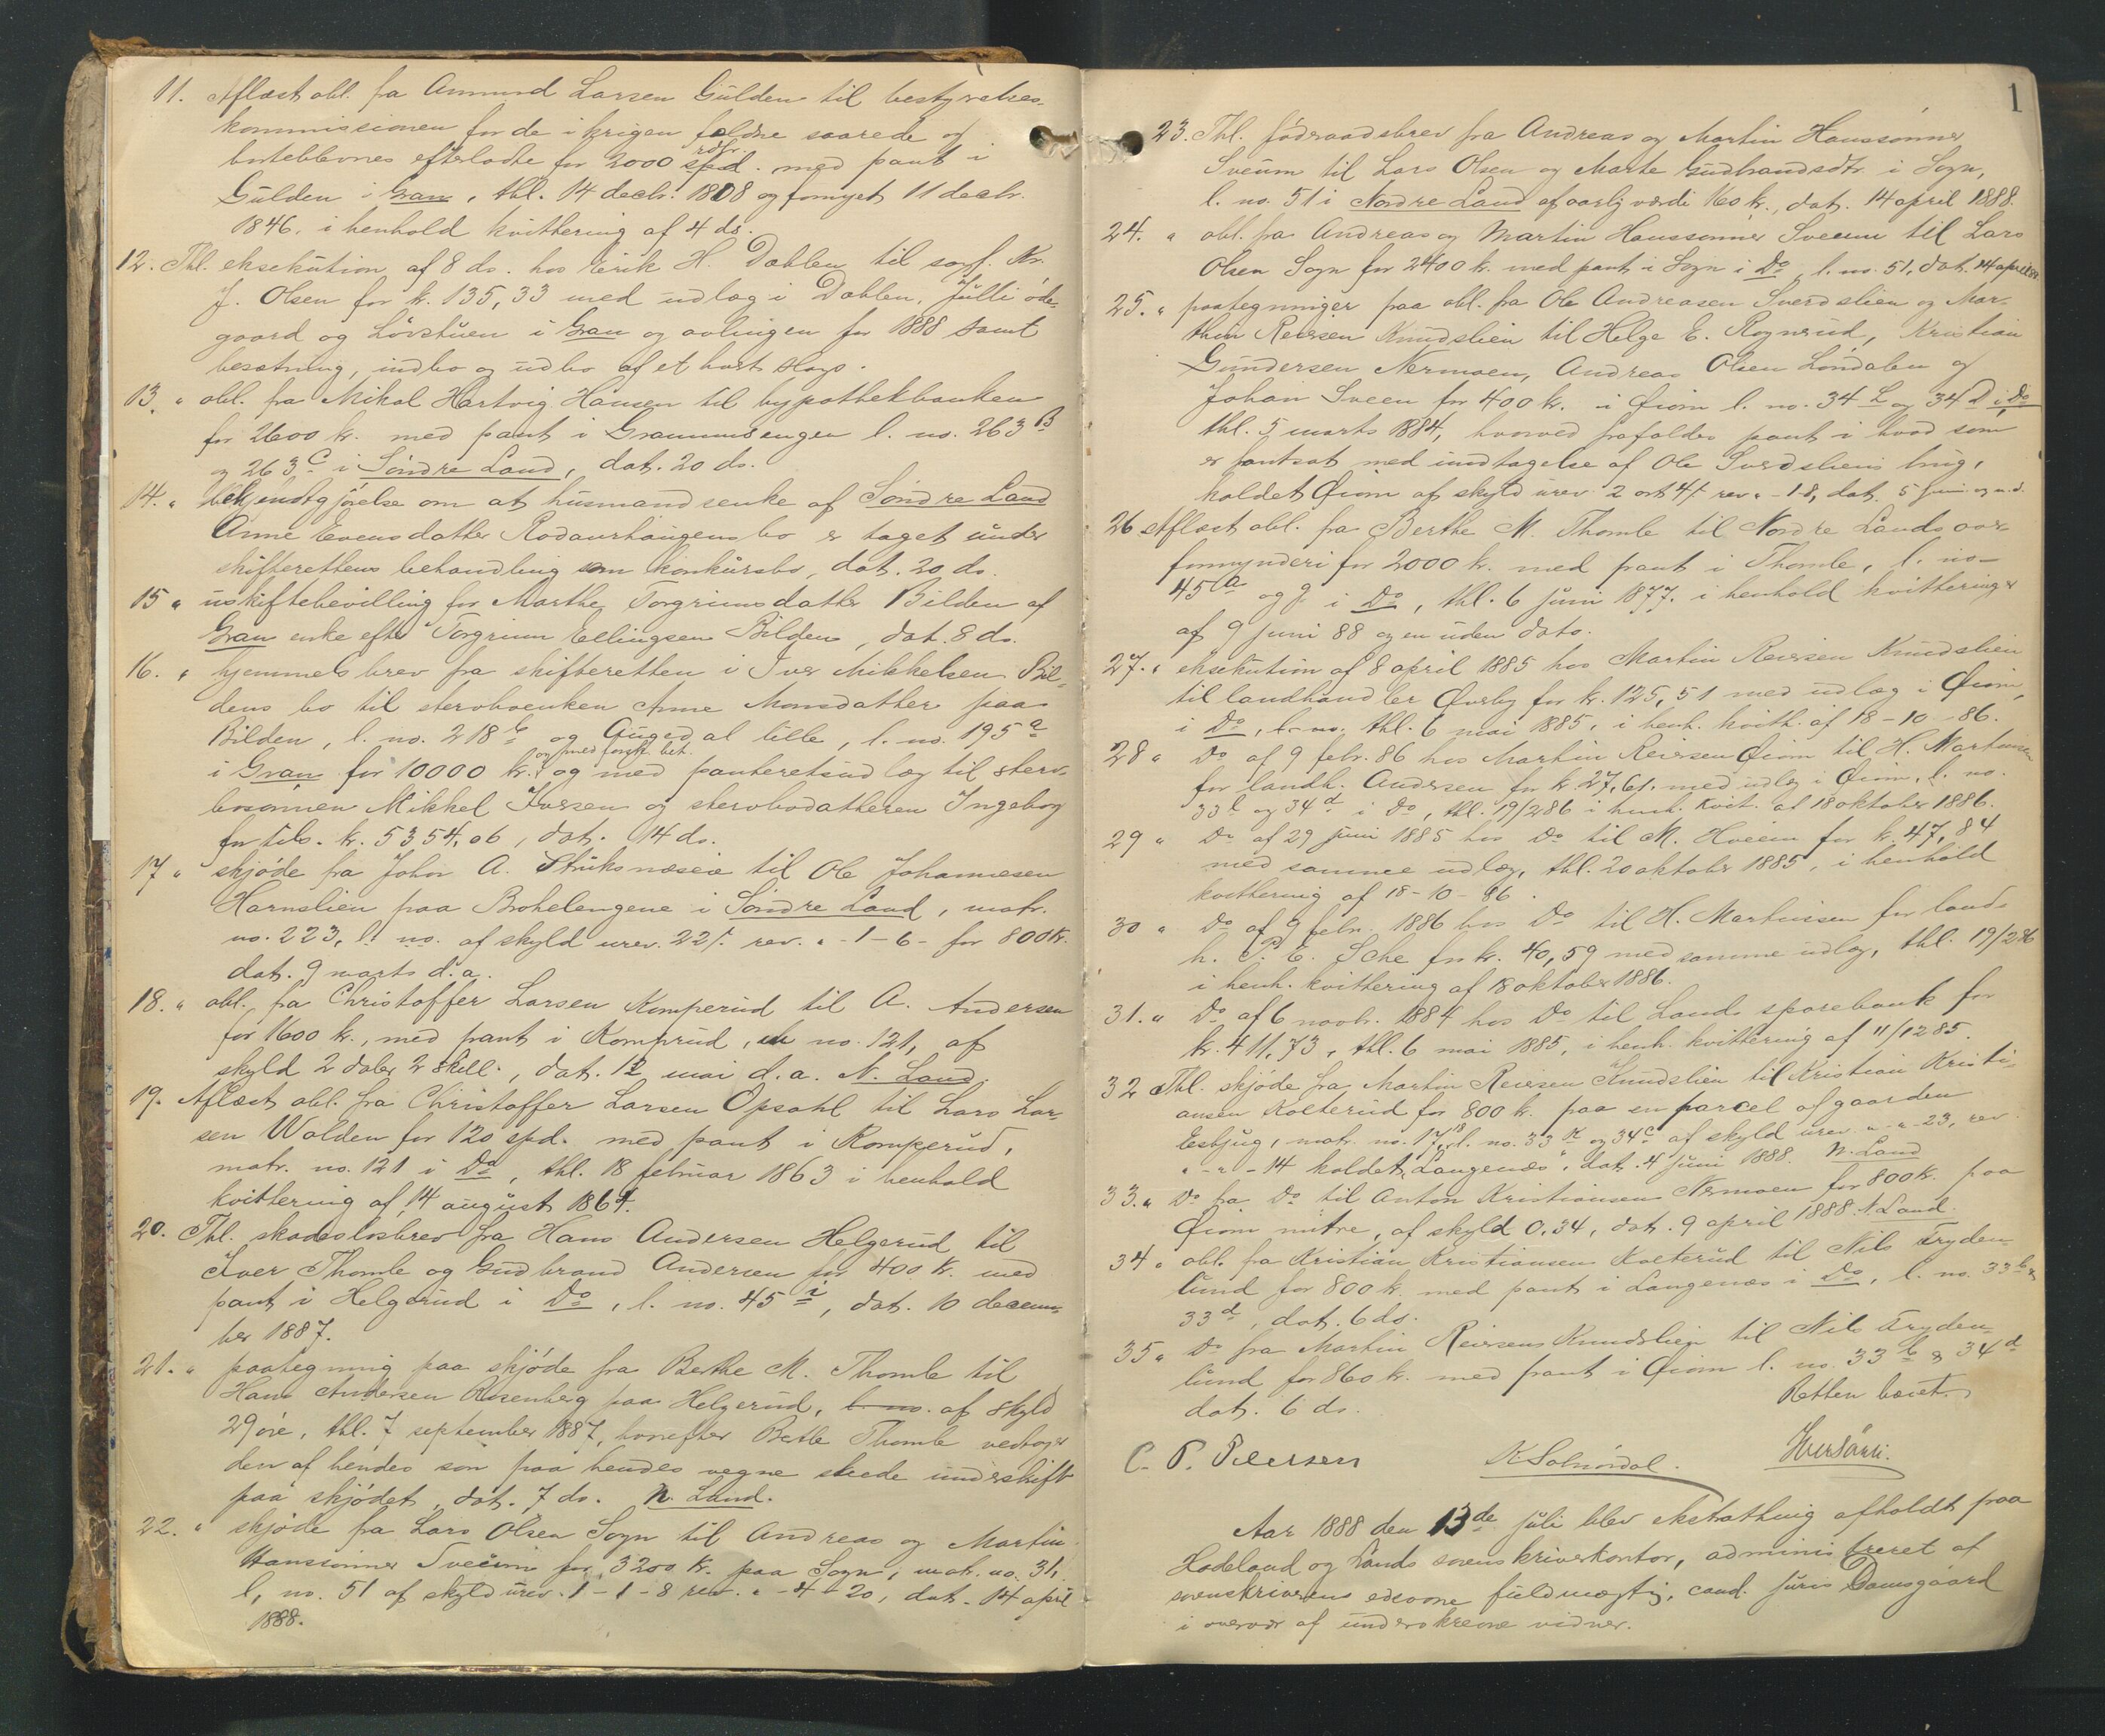 11. Aflæst obl. fra Amund Larsen Gulden til bestyrelses-
kommissionen for de i krigen faldne saarede og
bortebbevnes efterladte for 2000 rdlr. med pant i
Gulden i Gran, thl. 14 decbr. 1808 og fornyet 11 decbr.
1846, i henhold kvittering af 4 ds.
12. Thl. eksekution af 8 ds. hos Erik H. Dæhlen til sagf. Kr.
J. Olsen for k. 135,33 med udlæg i Dæhlen, Julli øde-
gaard og Løvstuen i Gran og avlingen for 1888 samt
besætning, indbo og udbo af et hvert slags.
13. " obl. fra Mikal Hartvig Hansen til hypothekbanken
for 2600 kr. med pant i Grammsengen l. no. 263 B
og 263 C i Søndre Land, dat. 20 ds.
14. " Bekjendtgjørelse om at husmandsenke af Søndre Land
Anne Evensdatter Rodaurhaugens bo er taget under
skifterettens behandling som konkursbo, dat. 20 ds.
15 " uskiftebevilling for Marthe Torgrimsdatter Bilden af
Gran enke efter Torgrim Ellingsen Bilden, dat. 8 ds.
16. " hjemmelsbrev fra skifteretten i Iver Mikkelsen Bil-
dens bo til stervboenken Anne Monsdatter paa
Bilden, l. no. 218 b og Gugedal lille, l. no. 195 a
og med forest. bet.
i Gran for 10000 kr. og med panteretsudlæg til sterv-
bosønnen Mikkel Iversen og stervbodatteren Ingeborg
for tils. kr. 5354,06, dat. 14 ds.
17 " skjøde fra Johan A. Struksnæseie til Ole Johannesen
Harnslien paa Brohelengene i Søndre Land, matr.
no. 223, l. no. af skyld urev. 22 s. rev. " - 1 - 6 - for 800 kr.
dat. 9 marts d. a.
18. " obl. fra Christoffer Larsen Komperud til A. Andersen
for 1600 kr., med pant i Komprud, no. 121, af
skyld 2 daler 2 skill., dat. 12 mai d. a. N. Land
19. Aflæst obl. fra Christoffer Larsen Opsahl til Lars Lar-
sen Wolden for 120 spd. med pant i Komperud,
matr. no. 121 i Do, thl. 18 februar 1863 i henhold
kvittering af 14 august 1864.
20. Thl. skadesløsbrev fra Hans Andersen Helgerud til
Iver Thomle og Gudbrand Andersen for 400 kr. med
pant i Helgerud i Do, l. no. 45 r, dat. 10 decem-
ber 1887.
21. " paategning paa skjøde fra Berthe M. Thomle til
Hans Andersen Rosenberg paa Helgerud, l. no. af skyld
29 øre, thl. 7 september 1887, hvorefter Berthe Thomle vedtager
den af hendes søn paa hendes vegne skeede underskift
paa skjødet, dat. 7 ds. N. Land.
22. " skjøde fra Lars Olsen Sogn til Andreas og Martin
Hanssønner Sveum for 3200 kr. paa Sogn, matr. no. 31,
l. no. 51 af skyld urev. 1 - 1 - 8 rev. " - 4 - 20, dat. 14 april
1888.
1
23. Thl. føderaadsbrev fra Andreas og Martin Hanssønner
Sveum til Lars Olsen og Marte Gudbrandsdtr. i Sogn,
l. no. 51 i Nordre Land af aarlig værdi 160 kr., dat. 14 april 1888.
24. " obl. fra Andreas og Martin Hanssønner Sveum til Lars
Olsen Sogn for 2400 kr. med pant i Sogn i Do, l. no. 51, dat. 14 april
25. " paategninger paa obl. fra Ole Andreasen Sverdslien og Mar-
thin Reiersen Knudslien til Helge E. Rognerud, Kristian
Gundersen Nermoen, Andreas Olsen Londalen og
Johan Sveen for 400 kr. i Øiom l. no. 34 L og 34 D i Do
thl. 5 marts 1884, hvorved frafaldes pant i hvad som
er pantsat med undtagelse af Ole Sverdsliens brug,
kaldet Øiom af skyld urev. 2 ort 4 s. rev. " - 1 - 8, dat. 5 juni og u. d.
26 Aflæst obl. fra Berthe M. Thomle til Nordre Lands over-
formynderi for 2000 kr. med pant i Thomle, l. no.
45 a og g i Do, thl. 6 juni 1877. i henhold kvitteringer
af 9 juni 88 og en uden dato.
27. " eksekution af 8 april 1885 hos Martin Reiersen Knudslien
til landhandler Øverby for kr. 125,51 med udlæg i Øiom,
i Do, l. no. thl. 6 mai 1885, i henh. kvitt. af 18-10-86.
28 " Do af 9 febr. 86 hos Martin Reiersen Øiom til H. Martinsen
for landh. Andersen for kr. 27,61. med udlæg i Øiom, l. no.
33 l og 34 d i Do, thl. 19/2 86 i henh. kvit. af 18 oktober 1886.
29 " Do af 29 juni 1885 hos Do til M. Hveem for kr. 47,84
med samme udlæg, thl. 20 oktober 1885, i henhold
kvittering af 18-10-86.
30 " Do af 9 febr. 1886 hos Do til H. Martinsen for land-
h. P. E. Sche for kr. 40,59 med samme udlæg, thl. 19/2 86
i henh. kvittering af 18 oktober 1886.
31. " Do af 6 novbr. 1884 hos Do til Lands sparebank for
kr. 411,73, thl. 6 mai 1885, i henh. kvittering af 11/12 85.
32 Thl. skjøde fra Martin Reiersen Knudslien til Kristian Kristi-
ansen Kolterud for 800 kr. paa en parcel af gaarden
Esbjug, matr. no. 17, 18 l. no. 33 k og 34 c af skyld urev. " - " - 23, rev.
" - " - 14 kaldet "Langenæs", dat. 4 juni 1888. N. Land
33. " Do fra Do til Anton Kristiansen Nermoen for 800 kr. paa
Øiom mitre, af skyld 0.34, dat. 9 april 1888. N. Land.
34 " obl. fra Kristian Kristiansen Kolterud til Nils Tryden-
lund for 800 kr. med pant i Langenæs i Do, l. no. 33 b &
33 d, dat. 6 ds.
35 " Do fra Martin Reiersen Knudslien til Nils Tryden-
lund for 860 kr. med pant i Øiom l. no. 33 b & 34 d
dat. 6 ds.
Retten hævet.
C. P. Pedersen K. Solnørdal.
Aar 1888 den 13de juli blev ekstrathing afholdt paa
Hadeland og Lands sorenskriverkontor, administreret af
sorenskriverens edsvorne fuldmægtig, cand. juris Damsgaard
i overvær af underskrevne vidner.